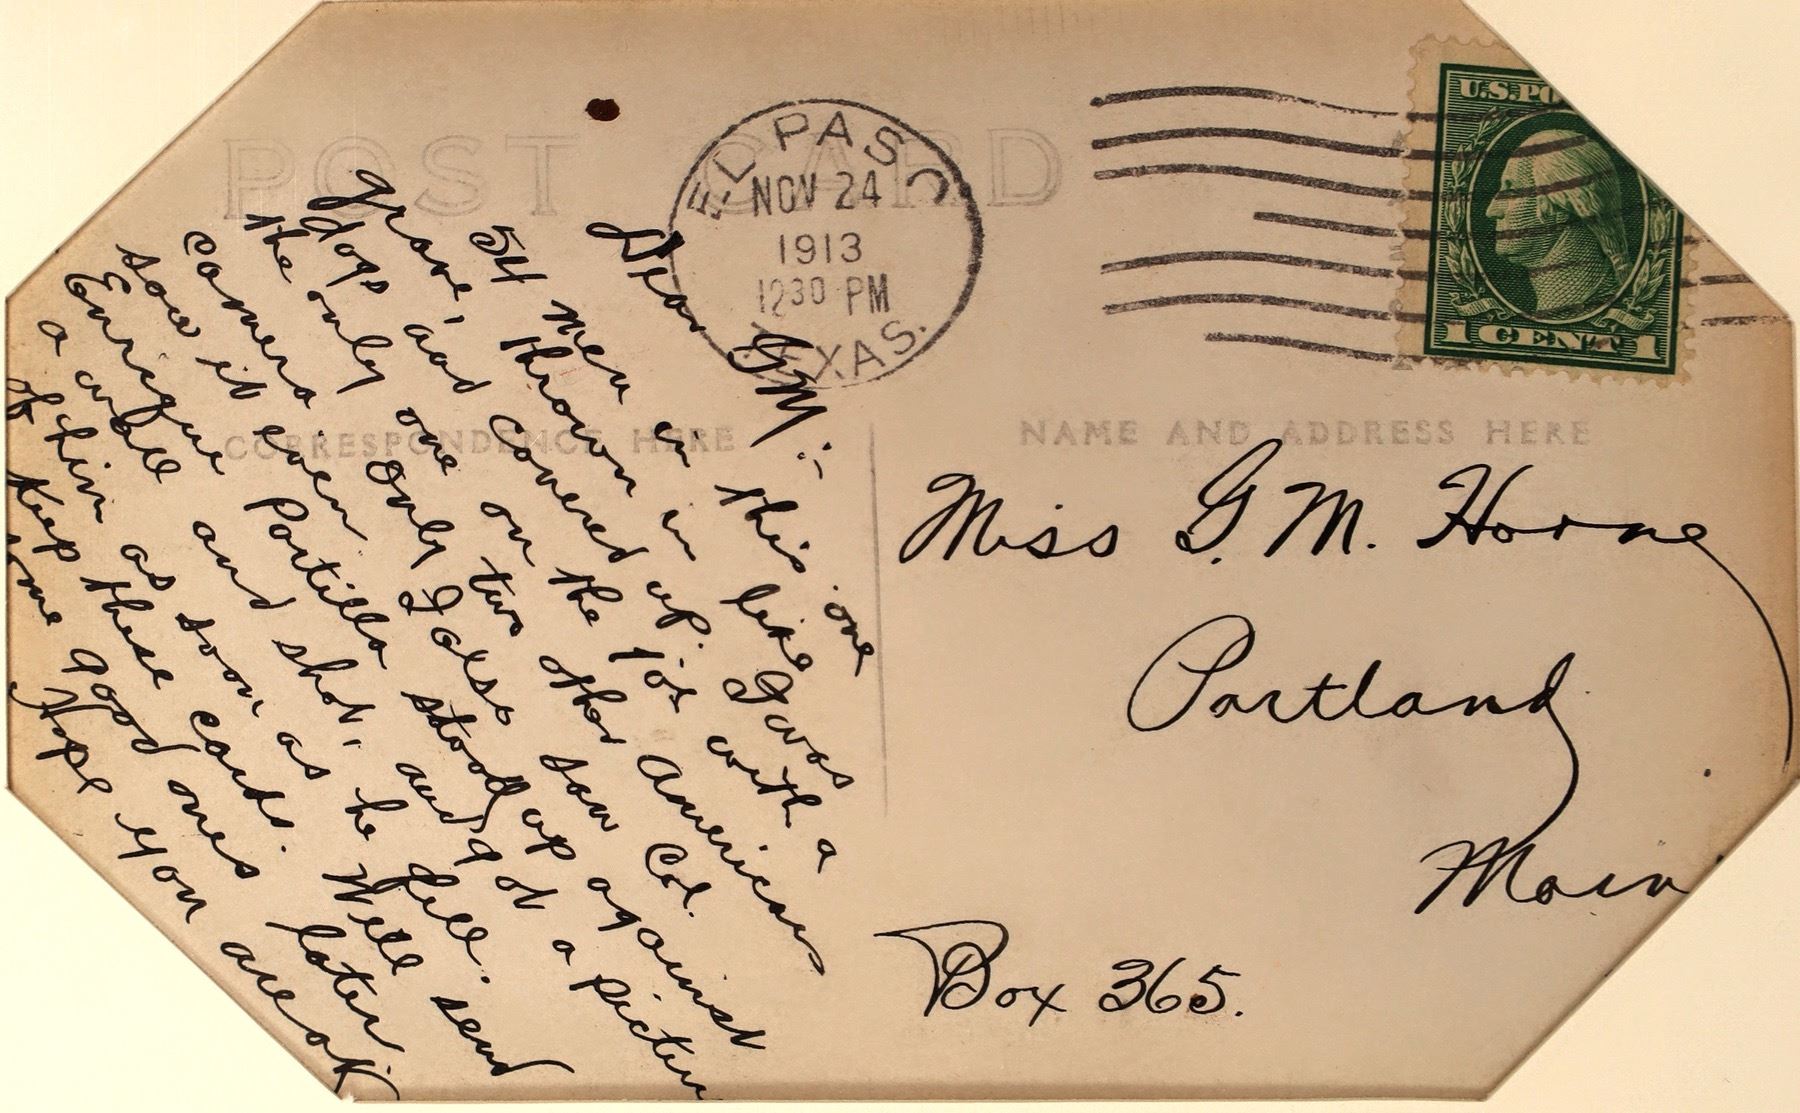 POST CARD
EL PASO
NOV 24
1913
12 30 PM
TEXAS.
U.S. PO
1 CENT 1
CORRESPONDENCE HERE
NAME AND ADDRESS HERE
Dear GM :-
54 men in this one
grave, thrown in like
dogs and covered up. I was
the only one on the job with a
camera Only two other American
saw it even I also saw Col.
Enrique Portillo stood up against
a wall and shot, and got a picture
of him as soon as he fell.
Keep these cards. Will send
some good ones later
Hope you are ok
Miss G. M. Horne
Portland
Main
Box 365.